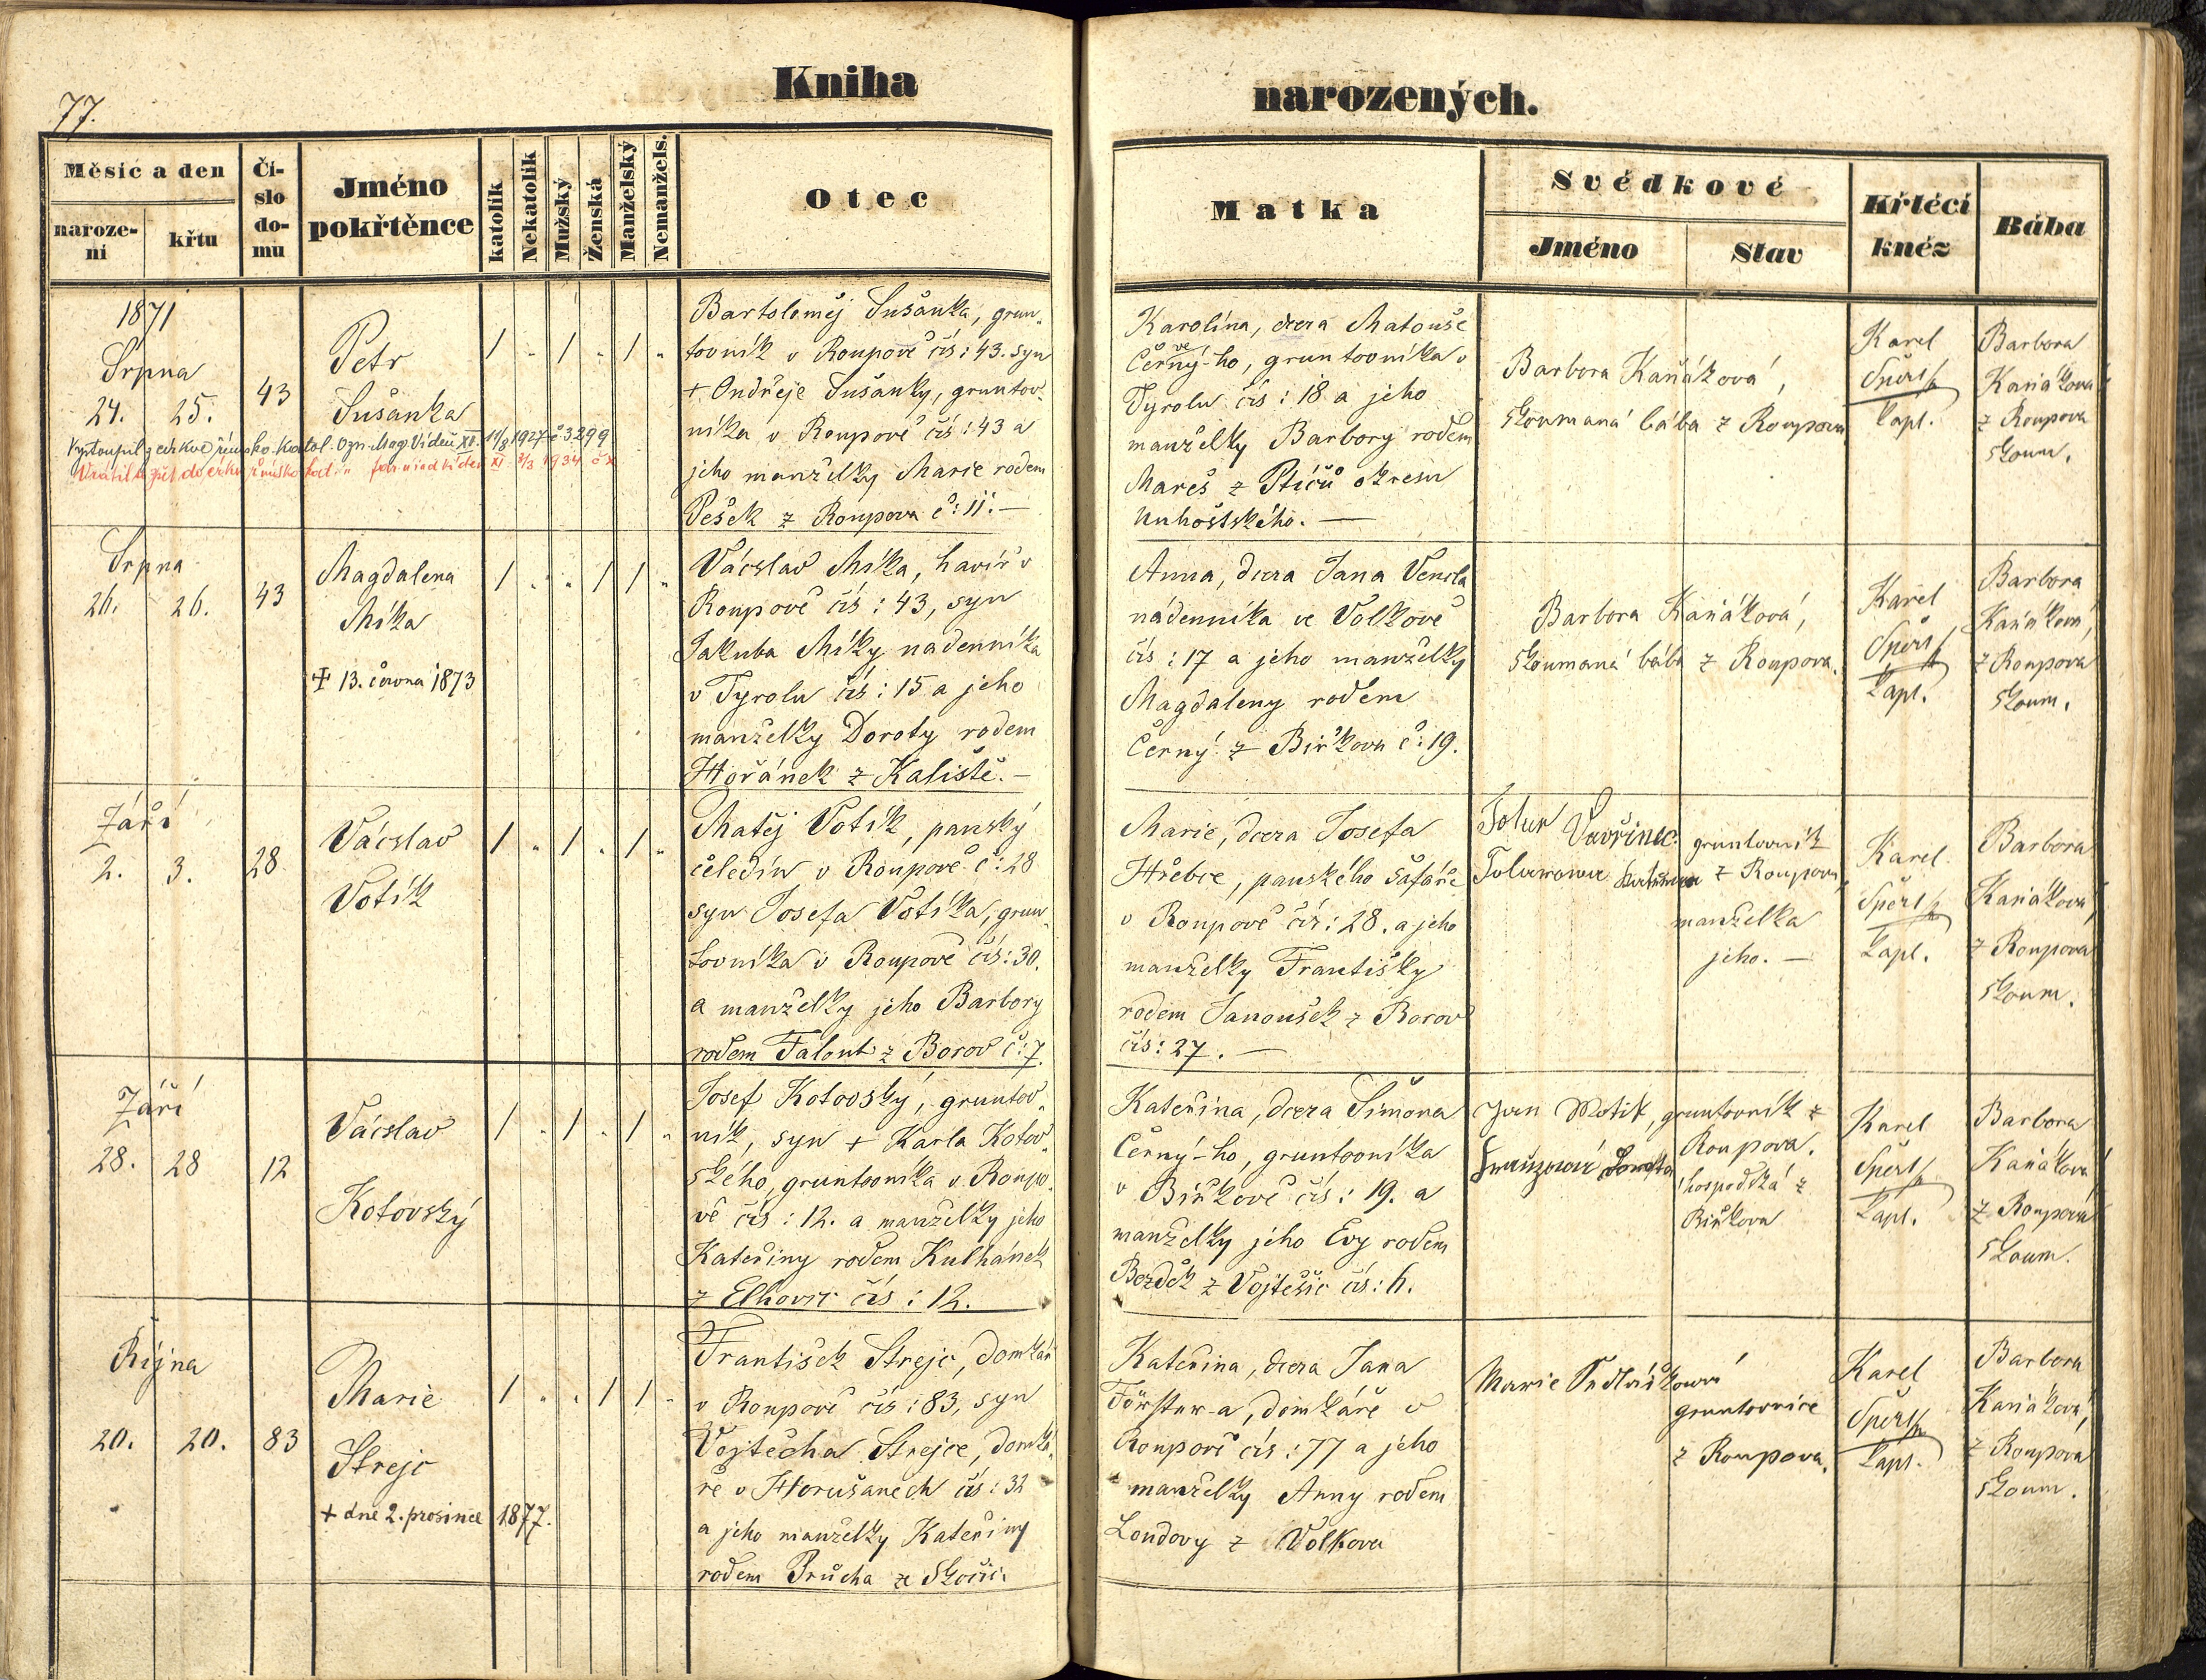 77.
Kniha narozených.
Měsíc a den
naroze-
ní
křtu
Čí-
slo
do-
mu
Jméno
pokřtěnce
katolík
Nekatolík
Mužský
Ženská
Manželský
Nemanžels.
Otec
Matka
Svědkové
Jméno
Stav
Křtící
kněz
Bába
1871
Srpna
24. 25.
43
Petr
Sušanka
/ „ / „ / „
Vystoupil z církve římsko-katol. Ozn. Mag. Vídeň XII. 11/8 1927 č 3299
Vrátil se zpět do církve římsko kat. 8/3 1934
Bartoloměj Sušanka, grun„
tovník v Roupově čís: 43. syn
+ Ondřeje Sušanky, gruntov„
níka v Roupově čís: 43 a
jeho manželky Marie rodem
Pešek z Roupova č: 11. —
Karolína, dcera Matouše
Černý-ho, gruntovníka v
ve
Tyrolu čís: 18 a jeho
manželky Barbory rodem
Mareš z Ptičů okresu
—
Barbora Kaňáková,
zkoumaná bába z Roupova
Karel
Šperl
kapl.
Barbora
Kaňáková
z Roupova
zkoum.
Srpna
26. 26.
43
Magdalena
Míka
+ 13. června 1873
/ „ „ / / „
Vácslav Míka, havíř v
Roupově čís: 43, syn
Jakuba Míky nadenníka
v Tyrolu čís: 15 a jeho
manželky Doroty rodem
Hořánek z Kaliště. —
Anna, dcera Jana Vencla
nádenníka ve Volkově
čís: 17 a jeho manželky
Magdaleny rodem
Černý z Biřkova č: 19.
Barbora Kaňáková,
zkoumaná bába z Roupova.
Karel
Šperl
kapl.
Barbora
Kaňáková,
z Roupova
zkoum.
Září
2. 3.
28
Vácslav
Votík
/ „ / „ / „
Matěj Votík, panský
čeledín v Roupově č: 28
syn Josefa Votíka, grun„
tovníka v Roupově čís: 30.
a manželky jeho Barbory
rodem Talout z Borov č: 7.
Marie, dcera Josefa
Hřebce, panského šafáře
v Roupově čís: 28. a jeho
manželky Františky
rodem Janoušek z Borov
čís: 27. —
Vavřinec
gruntovník
z Roupova
manželka
jeho. —
Karel
Šperl
kapl.
Barbora
Kaňáková,
z Roupova
zkoum.
Září
28. 28
12
Vácslav
Kotovský
/ „ / „ / „
Josef Kotovský, gruntov„
ník, syn + Karla Kotov„
ského, gruntovníka v Roupo„
vě čís: 12. a manželky jeho
Kateřiny rodem Kulhánek
z Elhovic čís: 12.
Kateřina, dcera Šimona
Černý-ho, gruntovníka
v Biřkově čís: 19. a
manželky jeho Evy rodem
Bezděk z Vojtěšic čís: 6.
Jan Motik, gruntovník z
Roupova.
hospodská z
Biřkova
Karel
Šperl
kapl.
Barbora
Kaňáková,
z Roupova
zkoum.
Října
20. 20.
83
Marie
Strejc
+ dne 2. prosince 1877.
/ „ „ / / „
František Strejc, domkář
v Roupově čís: 83, syn
Vojtěcha Strejce, domká„
ře v Horušanech čís: 32
a jeho manželky Kateřiny
rodem Průcha ze Skočic.
Kateřina, dcera Jana
Förster-a, domkáře v
Roupově čís: 77 a jeho
manželky Anny rodem
Londovy z Volkova
Marie Sedláčková
gruntovnice
z Roupova.
Karel
Šperl
kapl.
Barbora
Kaňáková,
z Roupova
zkoum.